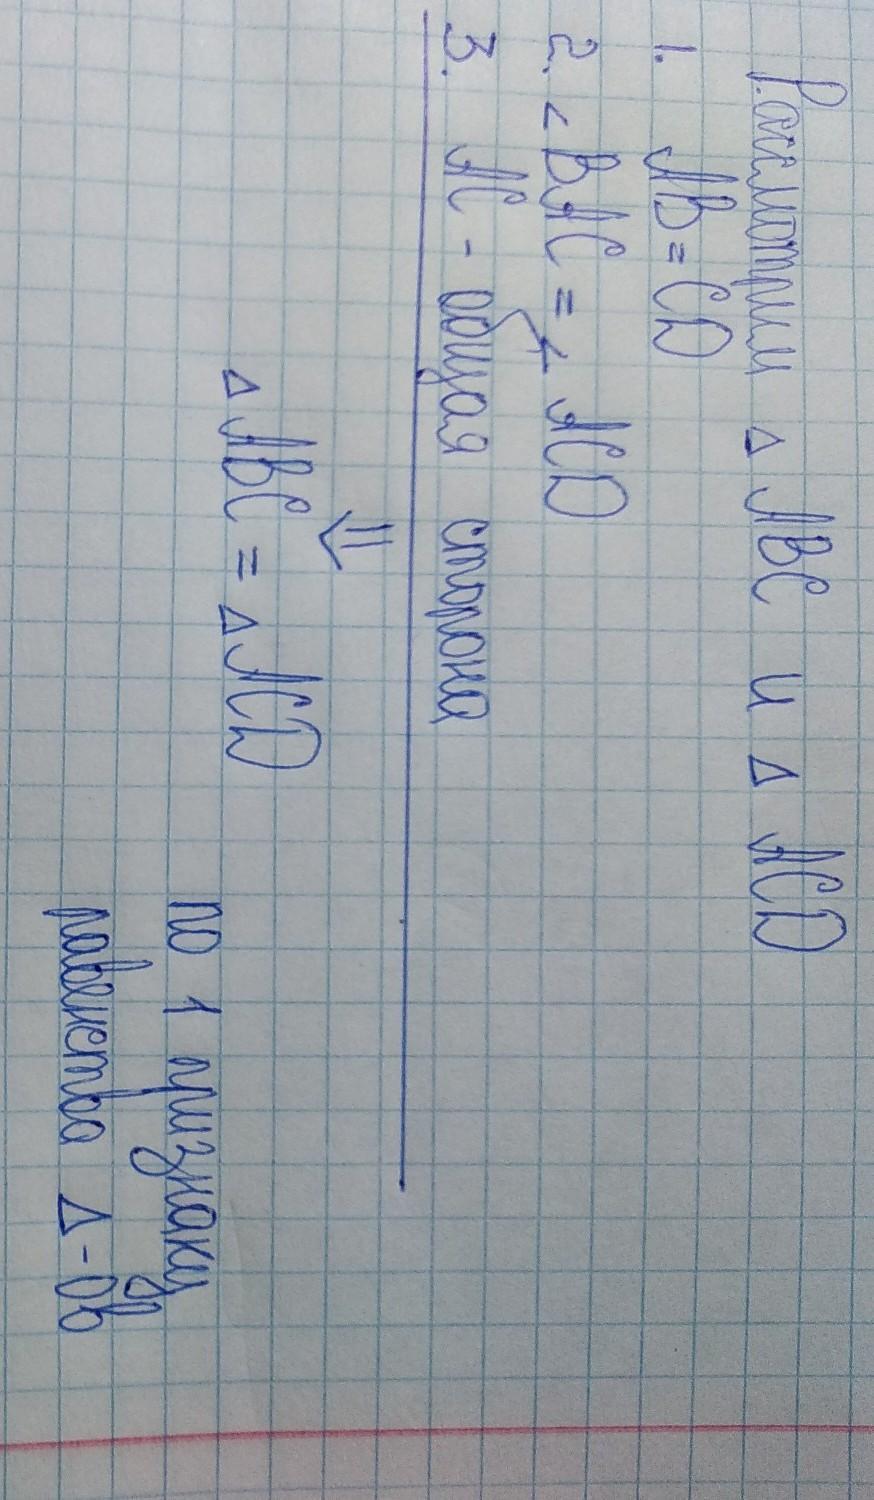 Рассмотрим Δ ABC и Δ ACD
1. AB = CD
2. ∠ BAC = ∠ ACD
3. AC - общая сторона
⇓
Δ ABC = Δ ACD
по 1 признаку
равенства Δ-ов